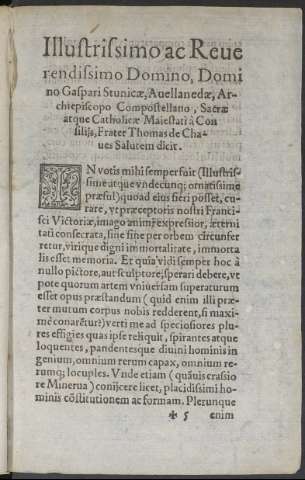 Illustrissimo ac Reue
rendissimo Domino, Domi
no Gaspari Stunicæ, Auellanedæ, Ar-
chiepiscopo Compostellano, Sacræ
atque Catholicæ Maiestati à Con
silijs, Frater Thomas de Cha-
ues Salutem dicit.
IN votis mihi semper fuit (Illustris-
sime atque vndecunq; ornatissime
præsul) quoad eius fieri posset, cu-
rare, vt præceptoris nostri Franci-
sci Victoriæ, imago animę expressior, æterni
tati consecrata, sine fine per orbem circunfer
retur, virique digni immortalitate, immorta
lis esset memoria. Et quia vidi semper hoc à
nullo pictore, aut sculptore; sperari debere, vt
pote quorum artem vniuersam superaturum
esset opus præstandum (quid enim illi præ-
ter mutum corpus nobis redderent, si maxi-
mè conarētur?) verti me ad speciosiores plu-
res effigies quas ipse reliquit, spirantes atque
loquentes, pandentesque diuini hominis in
genium, omnium rerum capax, omnium re-
rumq; locuples. Vnde etiam (quāuis crassio
re Minerua) conijcere licet, placidissimi ho-
minis cōstitutionem ac formam. Plerunque
✠ 5 enim